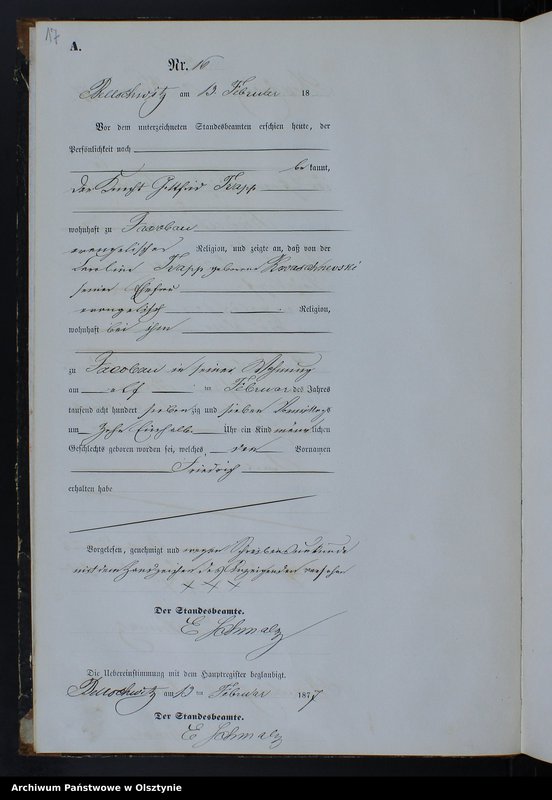 17
A.
Nr. 16
Bellschwitz am 13 Februar 18
Vor dem unterzeichneten Standesbeamten erschien heute, der
Persönlichkeit nach
be kannt,
der Knecht Gottfried Trapp
wohnhaft zu Jacobau
evangelischer Religion, und zeigte an, daß von der
Trapp geborene
seiner Ehefrau
evangelisch Religion,
wohnhaft bei ihm
zu Jacobau in seiner Wohnung
am elf ten Februar des Jahres
tausend acht hundert sieben zig und sieben Vormittags
um Zehn Einhalb Uhr ein Kind männ lichen
Geschlechts geboren worden sei, welches den Vornamen
Friedrich
erhalten habe
Vorgelesen, genehmigt und wegen Schreibensunkunde
mit dem Handzeichen des Anzeigenden versehen
+ + +
Der Standesbeamte.
E Schmalz
Die Uebereinstimmung mit dem Hauptregister beglaubigt.
Bellschwitz am 13 ten Februar 1877
Der Standesbeamte.
E Schmalz
Archiwum Państwowe w Olsztynie